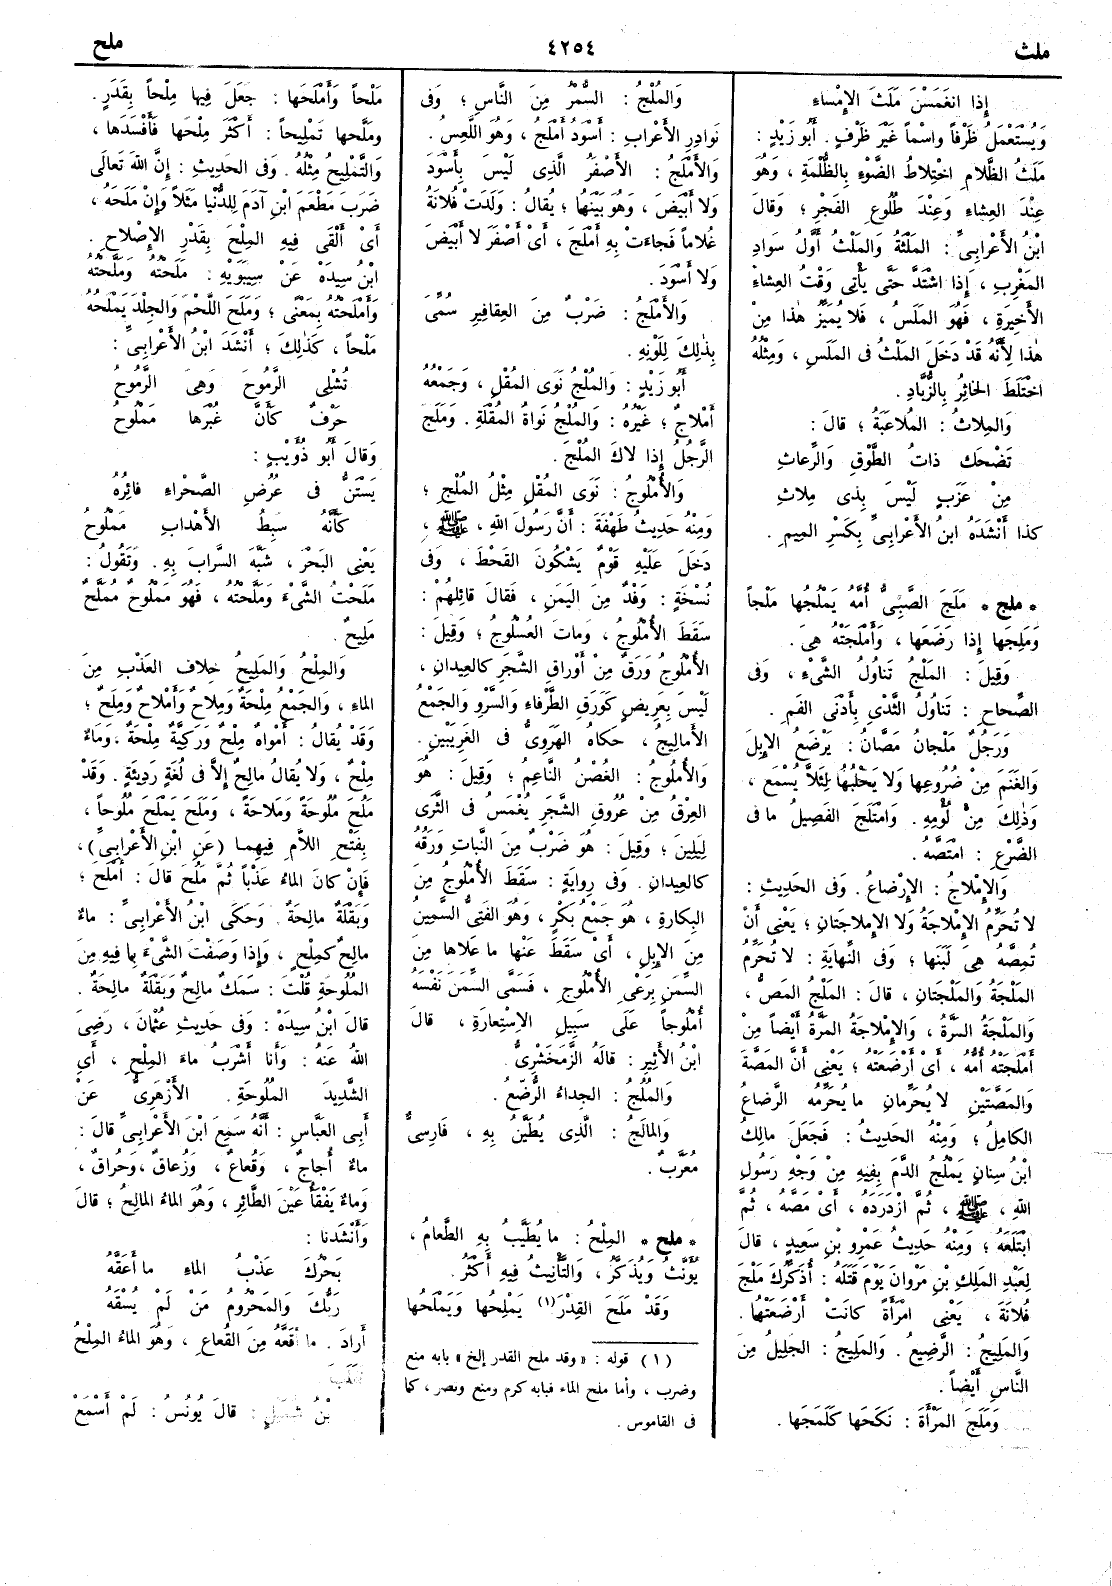 ملث
٤٢٥٤
ملح
إِذا انْغَمَسْنَ مَلَثَ الإِمْساءِ
وَيُسْتَعْمَلُ ظَرْفاً وَاسْماً غَيْرَ ظَرْفٍ . أَبُو زَيْدٍ :
مَلَثُ الظَّلامِ اخْتِلاطُ الضَّوْءِ بِالظُّلْمَةِ ، وَهُوَ
عِنْدَ العِشاءِ وَعِنْدَ طُلُوعِ الفَجْرِ ؛ وَقالَ
ابْنُ الأَعْرابِىِّ : المَلْثَةُ وَالمَلْثُ أَوَّلُ سَوادِ
المَغْرِبِ ، إِذا اشْتَدَّ حَتَّى يَأْتِى وَقْتُ العِشاءِ
الأَخِيرَةِ ، فَهُوَ المَلَسُ ، فَلا يُمَيَّزُ هٰذا مِنْ
هٰذا لِأَنَّهُ قَدْ دَخَلَ المَلْثُ فى المَلَسِ ، وَمِثْلُهُ
اخْتَلَطَ الخاثِرُ بِالزُّبادِ .
وَالمِلاثُ : المُلاعَبَةُ ؛ قالَ :
تَضْحَكُ ذاتُ الطَّوْقِ وَالرِّعاثِ
مِنْ عَزَبٍ لَيْسَ بِذِى مِلاثِ
كذا أَنْشَدَهُ ابنُ الأَعْرابِىِّ بِكَسْرِ المِيمِ .
* ملج * مَلَجَ الصَّبِىُّ أُمَّهُ يَمْلُجُها مَلْجاً
وَمَلِجَها إِذا رَضَعَها ، وَأَمْلَجَتْهُ هِىَ .
وَقِيلَ : المَلْجُ تَناوُلُ الشَّىْءِ ، وَفى
الصِّحاحِ : تَناوُلُ الثَّدْىِ بِأَدْنَى الفَمِ .
وَرَجُلٌ مَلْجانُ مَصَّانُ : يَرْضَعُ الإِبِلَ
وَالغَنَمَ مِنْ ضُرُوعِها وَلا يَحْلُبُها لِئَلاَّ يُسْمَعَ ،
وَذٰلِكَ مِنْ لُؤْمِهِ . وَامْتَلَجَ الفَصِيلُ ما فى
الضَّرْعِ : امْتَصَّهُ .
وَالإِمْلاجُ : الإِرْضاعُ . وَفى الحَدِيثِ :
لا تُحَرِّمُ الإِمْلاجَةُ وَلا الإِملاجَتانِ ؛ يَعْنِى أَنْ
تُمِصَّهُ هِىَ لَبَنَها ؛ وَفى النِّهايَةِ : لا تُحَرِّمُ
المَلْجَةُ وَالمَلْجَتانِ ، قالَ : المَلْجُ المَصُّ ،
وَالمَلْجَةُ المَرَّةُ ، وَالإِمْلاجَةُ المَرَّةُ أَيْضاً مِنْ
أَمْلَجَتْهُ أُمُّهُ ، أَىْ أَرْضَعَتْهُ ؛ يَعْنِى أَنَّ المَصَّةَ
وَالمَصَّتَيْنِ لا يُحَرِّمانِ ما يُحَرِّمُهُ الرَّضاعُ
الكامِلُ ؛ وَمِنْهُ الحَدِيثُ : فَجَعَلَ مالِكُ
ابْنُ سِنانٍ يَمْلُجُ الدَّمَ بِفِيهِ مِنْ وَجْهِ رَسُولِ
اللهِ ، ﷺ ، ثُمَّ ازْدَرَدَهُ ، أَىْ مَصَّهُ ، ثُمَّ
ابْتَلَعَهُ ؛ وَمِنْهُ حَدِيثُ عَمْرِو بْنِ سَعِيدٍ ، قالَ
لِعَبْدِ المَلِكِ بْنِ مَرْوانَ يَوْمَ قَتَلَهُ : أُذَكِّرُكَ مَلْجَ
فُلانَةَ ، يَعْنِى امْرَأَةً كانَتْ أَرْضَعَتْهُما .
وَالمَلِيجُ : الرَّضِيعُ . وَالمَلِيجُ : الجَلِيلُ مِنَ
النَّاسِ أَيْضاً .
وَمَلَجَ المَرْأَةَ : نَكَحَها كَلَمَجَها .
وَالمُلْجُ : السُّمْرُ مِنَ النَّاسِ ؛ وَفى
نَوادِرِ الأَعْرابِ : أَسْوَدُ أَمْلَجُ ، وَهُوَ اللَّعِسُ .
وَالأَمْلَجُ : الأَصْفَرُ الَّذِى لَيْسَ بِأَسْوَدَ
وَلا أَبْيَضَ ، وَهُوَ بَيْنَهُما ؛ يُقالُ : وَلَدَتْ فُلانَةُ
غُلاماً فَجاءَتْ بِهِ أَمْلَجَ ، أَىْ أَصْفَرَ لا أَبْيَضَ
وَلا أَسْوَدَ .
وَالأَمْلَجُ : ضَرْبٌ مِنَ العَقاقِيرِ سُمِّىَ
بِذٰلِكَ لِلَوْنِهِ .
أَبُو زَيْدٍ : وَالمُلْجُ نَوَى المُقْلِ ، وَجَمْعُهُ
أَمْلاجٌ ؛ غَيْرُهُ : وَالمُلْجُ نَواةُ المُقْلَةِ . وَمَلَجَ
الرَّجُلُ إِذا لاكَ المُلْجَ .
وَالأُمْلُوجُ : نَوَى المُقْلِ مِثْلُ المُلْجِ ؛
وَمِنْهُ حَدِيثُ طَهْفَةَ : أَنَّ رَسُولَ اللهِ ، ﷺ ،
دَخَلَ عَلَيْهِ قَوْمٌ يَشْكُونَ القَحْطَ ، وَفى
نُسْخَةٍ : وَفْدٌ مِنَ اليَمَنِ ، فَقالَ قائِلُهُمْ :
سَقَطَ الأُمْلُوجُ ، وَماتَ العُسْلُوجُ ؛ وَقِيلَ :
الأُمْلُوجُ وَرَقٌ مِنْ أَوْراقِ الشَّجَرِ كالعِيدانِ ،
لَيْسَ بِعَرِيضٍ كَوَرَقِ الطَّرْفاءِ وَالسَّرْوِ وَالجَمْعُ
الأَمالِيجُ ، حَكاهُ الهَرَوِىُّ فى الغَرِيبَيْنِ .
وَالأُمْلُوجُ : الغُصْنُ النَّاعِمُ ؛ وَقِيلَ : هُوَ
العِرْقُ مِنْ عُرُوقِ الشَّجَرِ يُغْمَسُ فى الثَّرَى
لِيَلِينَ ؛ وَقِيلَ : هُوَ ضَرْبٌ مِنَ النَّباتِ وَرَقُهُ
كالعِيدانِ . وَفى رِوايَةٍ : سَقَطَ الأُمْلُوجُ مِنَ
البِكارَةِ ، هُوَ جَمْعُ بَكْرٍ ، وَهُوَ الفَتِىُّ السَّمِينُ
مِنَ الإِبِلِ ، أَىْ سَقَطَ عَنْها ما عَلاها مِنَ
السِّمَنِ بِرَعْىِ الأُمْلُوجِ ، فَسَمَّى السِّمَنَ نَفْسَهُ
أُمْلُوجاً عَلَى سَبِيلِ الاِسْتِعارَةِ ، قالَ
ابْنُ الأَثِيرِ : قالَهُ الزَّمَخْشَرِىُّ .
وَالمُلُجُ : الجِداءُ الرُّضَّعُ .
وَالمالَجُ : الَّذِى يُطَيَّنُ بِهِ ، فارِسِىٌّ
مُعَرَّبٌ .
* ملح * المِلْحُ : ما يُطَيَّبُ بِهِ الطَّعامُ ،
يُؤَنَّثُ وَيُذَكَّرُ ، وَالتَّأْنِيثُ فِيهِ أَكْثَرُ .
وَقَدْ مَلَحَ القِدْرَ (١) يَمْلِحُها وَيَمْلَحُها
( ١ ) قوله : « وقد ملح القدر إلخ » بابه منع
وضرب ، وأما ملح الماء فبابه كرم ومنع ونصر ، كما
فى القاموس .
مَلْحاً وَأَمْلَحَها : جَعَلَ فِيها مِلْحاً بِقَدَرٍ .
وَمَلَّحها تَمْلِيحاً : أَكْثَرَ مِلْحَها فَأَفْسَدَها ،
وَالتَّمْلِيحُ مِثْلُهُ . وَفى الحَدِيثِ : إِنَّ اللهَ تَعالَى
ضَرَبَ مَطْعَمَ ابْنِ آدَمَ لِلدُّنْيا مَثَلاً وَإِنْ مَلَحَهُ ،
أَىْ أَلْقَى فِيهِ المِلْحَ بِقَدْرِ الإِصْلاحِ .
ابْنُ سِيدَهْ عَنْ سِيبَوَيْهِ : مَلَحْتُهُ وَمَلَّحْتُهُ
وَأَمْلَحْتُهُ بِمَعْنًى ؛ وَمَلَحَ اللَّحْمَ وَالجِلْدَ يَمْلَحُهُ
مَلْحاً ، كَذٰلِكَ ؛ أَنْشَدَ ابْنُ الأَعْرابِىِّ :
تُشْلِى الرَّمُوحَ وَهِىَ الرَّمُوحُ
حَرْفٌ كَأَنَّ غُبْرَها مَمْلُوحُ
وَقالَ أَبُو ذُؤَيْبٍ :
يَسْتَنُّ فى عُرُضِ الصَّحْراءِ فائِرُهُ
كَأَنَّهُ سَبِطُ الأَهْدابِ مَمْلُوحُ
يَعْنِى البَحْرَ ، شَبَّهَ السَّرابَ بِهِ . وَتَقُولُ :
مَلَحْتُ الشَّىْءَ وَمَلَّحْتُهُ ، فَهُوَ مَمْلُوحٌ مُمَلَّحٌ
مَلِيحٌ .
وَالمِلْحُ وَالمَلِيحُ خِلافُ العَذْبِ مِنَ
الماءِ ، وَالجَمْعُ مِلْحَةٌ وَمِلاحٌ وَأَمْلاحٌ وَمِلَحٌ ؛
وَقَدْ يُقالُ : أَمْواهٌ مِلْحٌ وَرَكِيَّةٌ مِلْحَةٌ ، وَماءٌ
مِلْحٌ ، وَلا يُقالُ مالِحٌ إِلاَّ فى لُغَةٍ رَدِيئَةٍ . وَقَدْ
مَلُحَ مُلُوحَةً وَمَلاحَةً ، وَمَلَحَ يَمْلَحُ مُلُوحاً ،
بِفَتْحِ اللاَّمِ فِيهِما ( عَنِ ابْنِ الأَعْرابِىِّ ) ،
فَإِنْ كانَ الماءُ عَذْباً ثُمَّ مَلُحَ قالَ : أَمْلَحَ ؛
وَبَقْلَةٌ مالِحَةٌ . وَحَكَى ابْنُ الأَعْرابِىِّ : ماءٌ
مالِحٌ كَمِلْحٍ ، وَإِذا وَصَفْتَ الشَّىْءَ بِما فِيهِ مِنَ
المُلُوحَةِ قُلْتَ : سَمَكٌ مالِحٌ وَبَقْلَةٌ مالِحَةٌ .
قالَ ابْنُ سِيدَهْ : وَفى حَدِيثِ عُثْمانَ ، رَضِىَ
اللهُ عَنْهُ : وَأَنا أَشْرَبُ ماءَ المِلْحِ ، أَىِ
الشَّدِيدَ المُلُوحَةِ . الأَزْهَرِىُّ عَنْ
أَبِى العَبَّاسِ : أَنَّهُ سَمِعَ ابْنَ الأَعْرابِىِّ قالَ :
ماءٌ أُجاجٌ ، وَقُعاعٌ ، وَزُعاقٌ ، وَحُراقٌ ،
وَماءٌ يَفْقَأُ عَيْنَ الطَّائِرِ ، وَهُوَ الماءُ المالِحُ ؛ قالَ
وَأَنْشَدَنا :
بَحْرُكَ عَذْبُ الماءِ ما أَعَقَّهُ
رَبُّكَ وَالمَحْرُومُ مَنْ لَمْ يُسْقَهُ
أَرادَ . ما أَقَعَّهُ مِنَ القُعاعِ ، وَهُوَ الماءُ المِلْحُ
بْنُ شُمَيْلٍ : قالَ يُونُسُ : لَمْ أَسْمَعْ